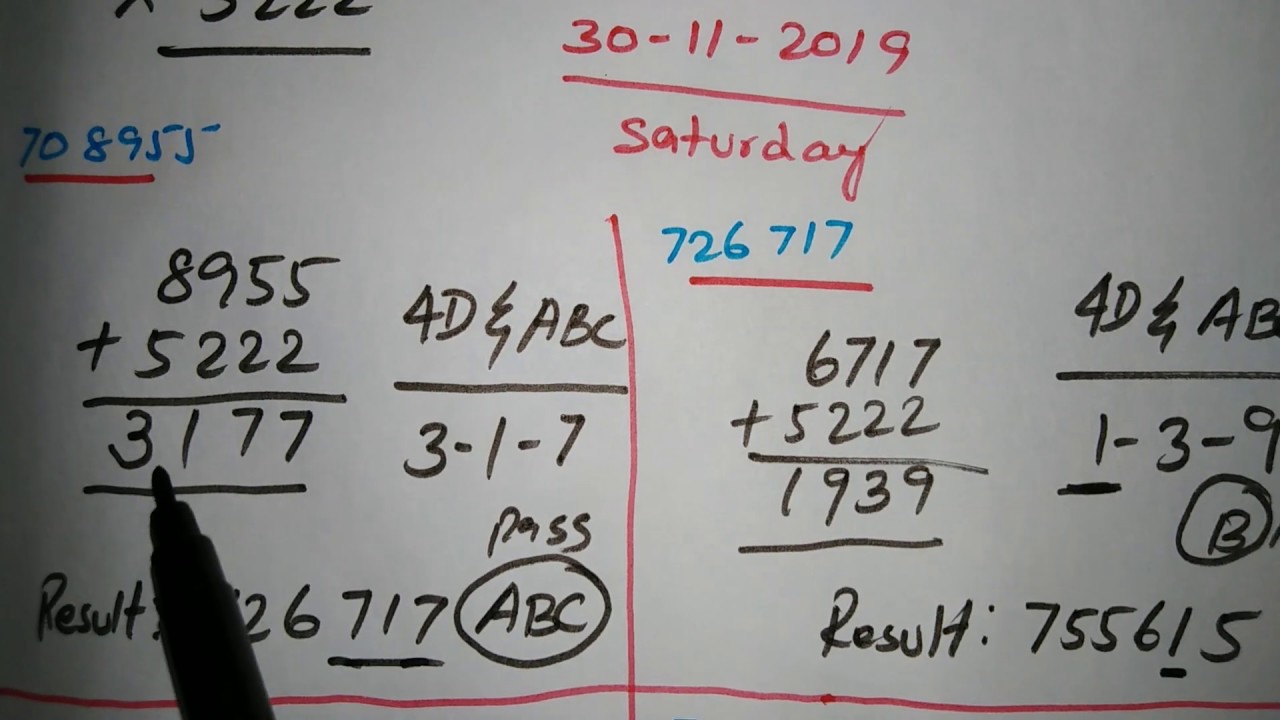 × 5222
30-11-2019
Saturday
708955
8955
+ 5222
3177
4D & ABC
3-1-7
Pass
Result: 26717 ABC
726717
6717
+ 5222
1939
4D & AB
1-3-9
B
Result: 755615